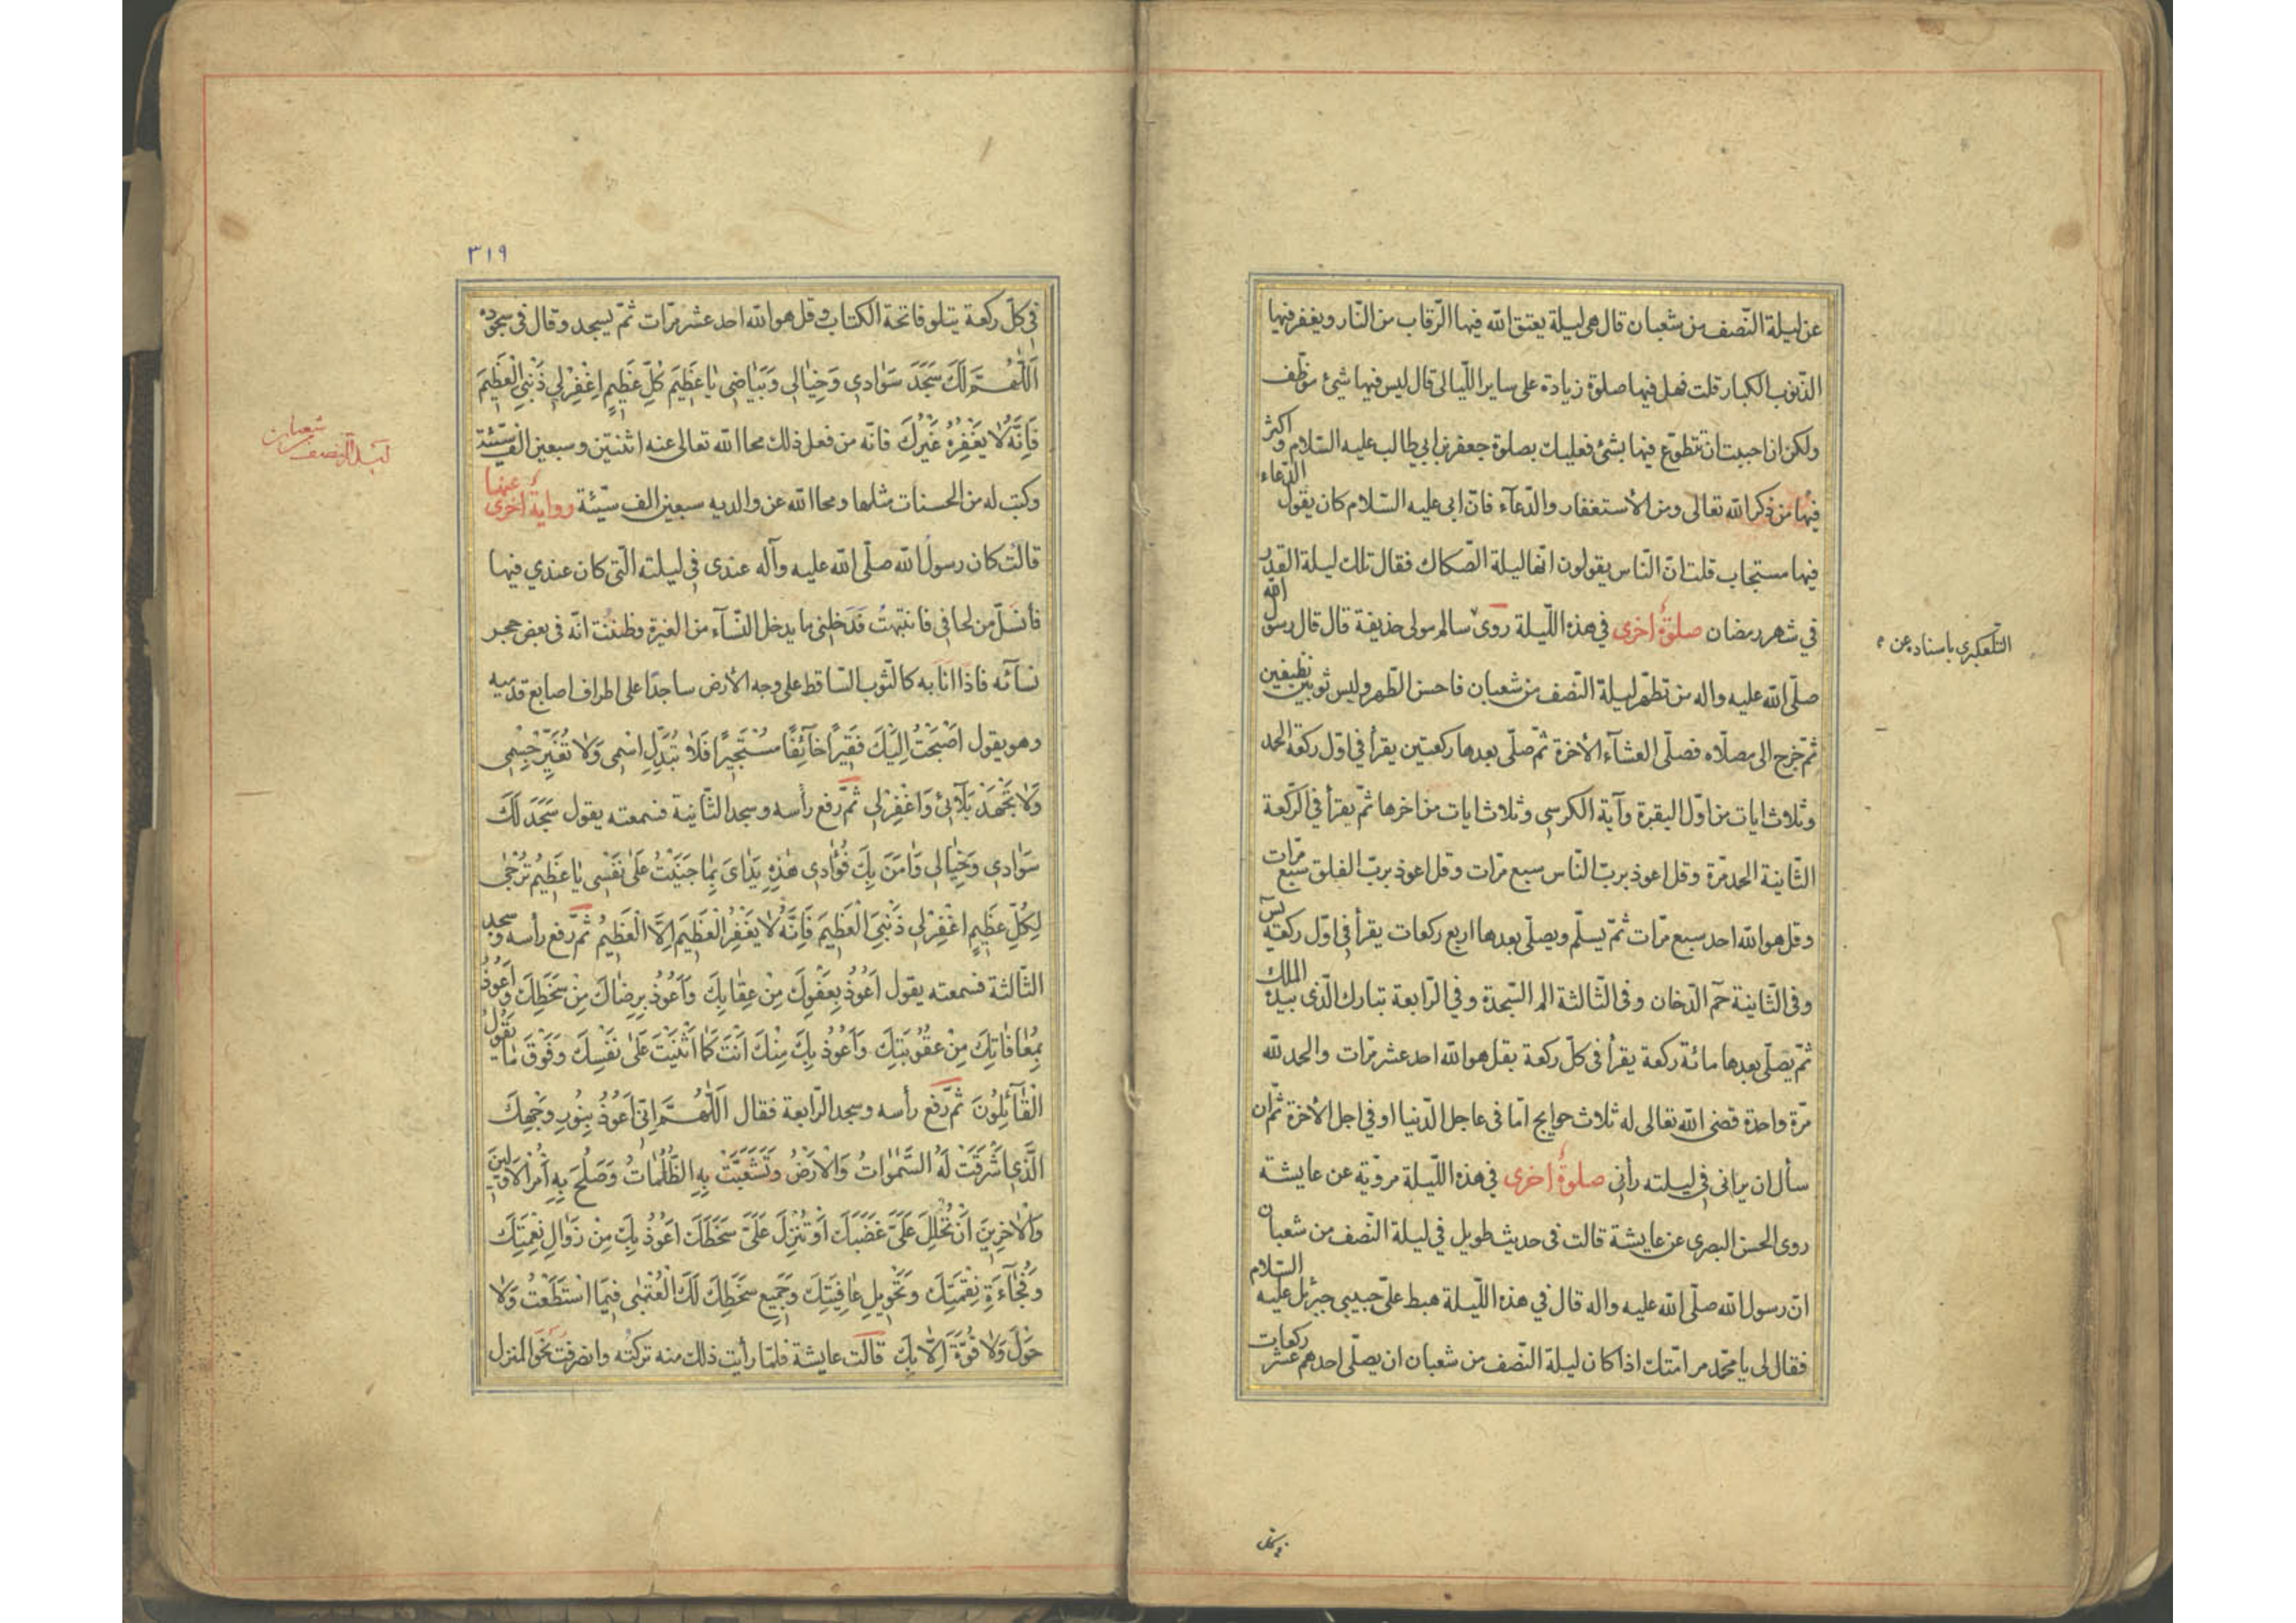 عن ليلة النّصف من شعبان قال هى ليلة يعتق الله فيها الرّقاب من النّار ويغفر فيها
الذّنوب الكبار قلت فهل فيها صلوة زيادة على ساير اللّيالى قال ليس فيها شئ موظّف
ولكن ان احببت ان تتطوّع فيها بشئ فعليك بصلوة جعفر بن ابي طالب عليه السّلام واكثر
فيها من ذكر الله تعالى ومن الأستغفار والدّعآء فانّ ابى عليه السّلام كان يقول الدّعاء
فيها مستجاب قلت انّ النّاس يقولون انّها ليلة الصّكاك فقال تلك ليلة القدر
في شهر رمضان صلوة اخرى في هذه اللّيلة روى سالم مولى حذيفة قال قال رسول الله
التّلعكبري باسناده عن
صلّى الله عليه واله من تطهّر ليلة النّصف من شعبان فاحسن الطّهر ولبس ثوبين نظيفين
ثمّ خرج الى مصلّاه فصلّى العشآء الأخرة ثمّ صلّى بعدها ركعتين يقرأ في اوّل ركعة الحمد
وثلاث ايات من اوّل البقرة وآية الكرسى وثلاث ايات من اخرها ثمّ يقرأ في الرّكعة
الثّانية الحمد مرّة وقل اعوذ بربّ النّاس سبع مرّات وقل اعوذ بربّ الفلق سبع مرّات
وقل هو الله احد سبع مرّات ثمّ يسلّم ويصلّى بعدها اربع ركعات يقرأ في اوّل ركعة يس
وفى الثّانية حم الدّخان وفى الثّالثة الم السّجدة وفي الرّابعة تبارك الّذى بيده الملك
ثمّ يصلّى بعدها مائة ركعة يقرأ فى كلّ ركعة بقل هو الله احد عشر مرّات والحمد لله
مرّة واحدة قضى الله تعالى له ثلاث حوايج امّا فى عاجل الدّنيا او في اجل الأخرة ثمّ ان
سأل ان يرانى في ليلته رأنى صلوة اخرى في هذه اللّيلة مرويّة عن عايشة
روى الحسن البصرى عن عايشة قالت فى حديث طويل في ليلة النّصف من شعبان
انّ رسول الله صلّى الله عليه واله قال في هذه اللّيلة هبط علىّ حبيبى جبرئيل عليه السّلام
فقال لى يا محمّد مر امّتك اذا كان ليلة النّصف من شعبان ان يصلّى احدهم عشر ركعات
في كل
٣١٩
في كلّ ركعة يتلو فاتحة الكتاب وقل هو الله احد عشر مرّات ثمّ يسجد وقال فى سجوده
اَللّهُمَّ لَكَ سَجَدَ سَوٰادي وَخِيٰالي وَبَيٰاضى يٰا عَظِيمَ كُلِّ عَظِيمٍ اِغْفِرْ لي ذَنْبِيَ الْعَظِيمَ
فَاِنَّهُ لٰا يَغْفِرُهُ غَيْرُكَ فانّه من فعل ذلك محا الله تعالى عنه اثنتين وسبعين الف سيّئة
ليلة النّصف شعبان
وكتب له من الحسنات مثلها ومحا الله عن والديه سبعين الف سيّئة رواية اخرى عنها
قالت كان رسول الله صلّى الله عليه وآله عندى في ليلته الّتى كان عندي فيها
فانسلّ من لحافى فانتبهت فدخلني ما يدخل النّسآء من الغيرة وظننت انّه فى بعض حجر
نسآئه فاذا انا به كالثّوب السّاقط على وجه الأرض ساجدًا على اطراف اصابع قدميه
وهو يقول اَصْبَحْتُ اِلَيْكَ فَقِيرًا خٰآئِفًا مُسْتَجيرًا فَلٰا تُبَدِّلِ اسْمى وَلٰا تُغَيِّرْ جِسْمى
وَلٰا تَجْهَدْ بَلٰآئى وَاغْفِرْ لي ثمّ رفع رأسه وسجد الثّانية فسمعته يقول سَجَدَ لَكَ
سَوٰادي وَخِيٰالي وَاٰمَنَ بِكَ فُؤٰادي هٰذِهِ يَدٰاىَ بِمٰا جَنَيْتُ عَلىٰ نَفْسى يٰا عَظِيمُ تُرْجىٰ
لِكُلِّ عَظِيمٍ اغْفِرْ لي ذَنْبِيَ الْعَظِيمَ فَاِنَّهُ لٰا يَغْفِرُ الْعَظِيمَ اِلَّا الْعَظِيمُ ثمّ رفع رأسه وسجد
الثّالثة فسمعته يقول اَعُوذُ بِعَفْوِكَ مِنْ عِقٰابِكَ وَاَعُوذُ بِرِضٰاكَ مِنْ سَخَطِكَ وَاَعُوذُ
بِمُعٰافٰاتِكَ مِنْ عُقُوبَتِكَ وَاَعُوذُ بِكَ مِنْكَ اَنْتَ كَمٰا اَثْنَيْتَ عَلىٰ نَفْسِكَ وَفَوْقَ مٰا يَقُولُ
الْقٰآئِلُونَ ثمّ رفع رأسه وسجد الرّابعة فقال اَللّٰهُمَّ اِنّى اَعُوذُ بِنُورِ وَجْهِكَ
الَّذي اَشْرَقَتْ لَهُ السَّمٰوٰاتُ وَالْاَرْضُ وَتَشَعَّبَتْ بِهِ الظُّلُمٰاتُ وَصَلُحَ بِهِ اَمْرُ الْاَوَّلينَ
وَالْاٰخِرِينَ اَنْ تُحْلِلَ عَلَىَّ غَضَبَكَ اَوْ تُنْزِلَ عَلَىَّ سَخَطَكَ اَعُوذُ بِكَ مِنْ زَوٰالِ نِعْمَتِكَ
وَفُجٰآءَةِ نِقْمَتِكَ وَتَحْوِيلِ عٰافِيَتِكَ وَجَمِيعِ سَخَطِكَ لَكَ الْعُتْبىٰ فيمَا اسْتَطَعْتُ وَلٰا
حَوْلَ وَلٰا قُوَّةَ اِلّٰا بِكَ قالت عايشة فلمّا رأيت ذلك منه تركته وانصرفت نحو المنزل